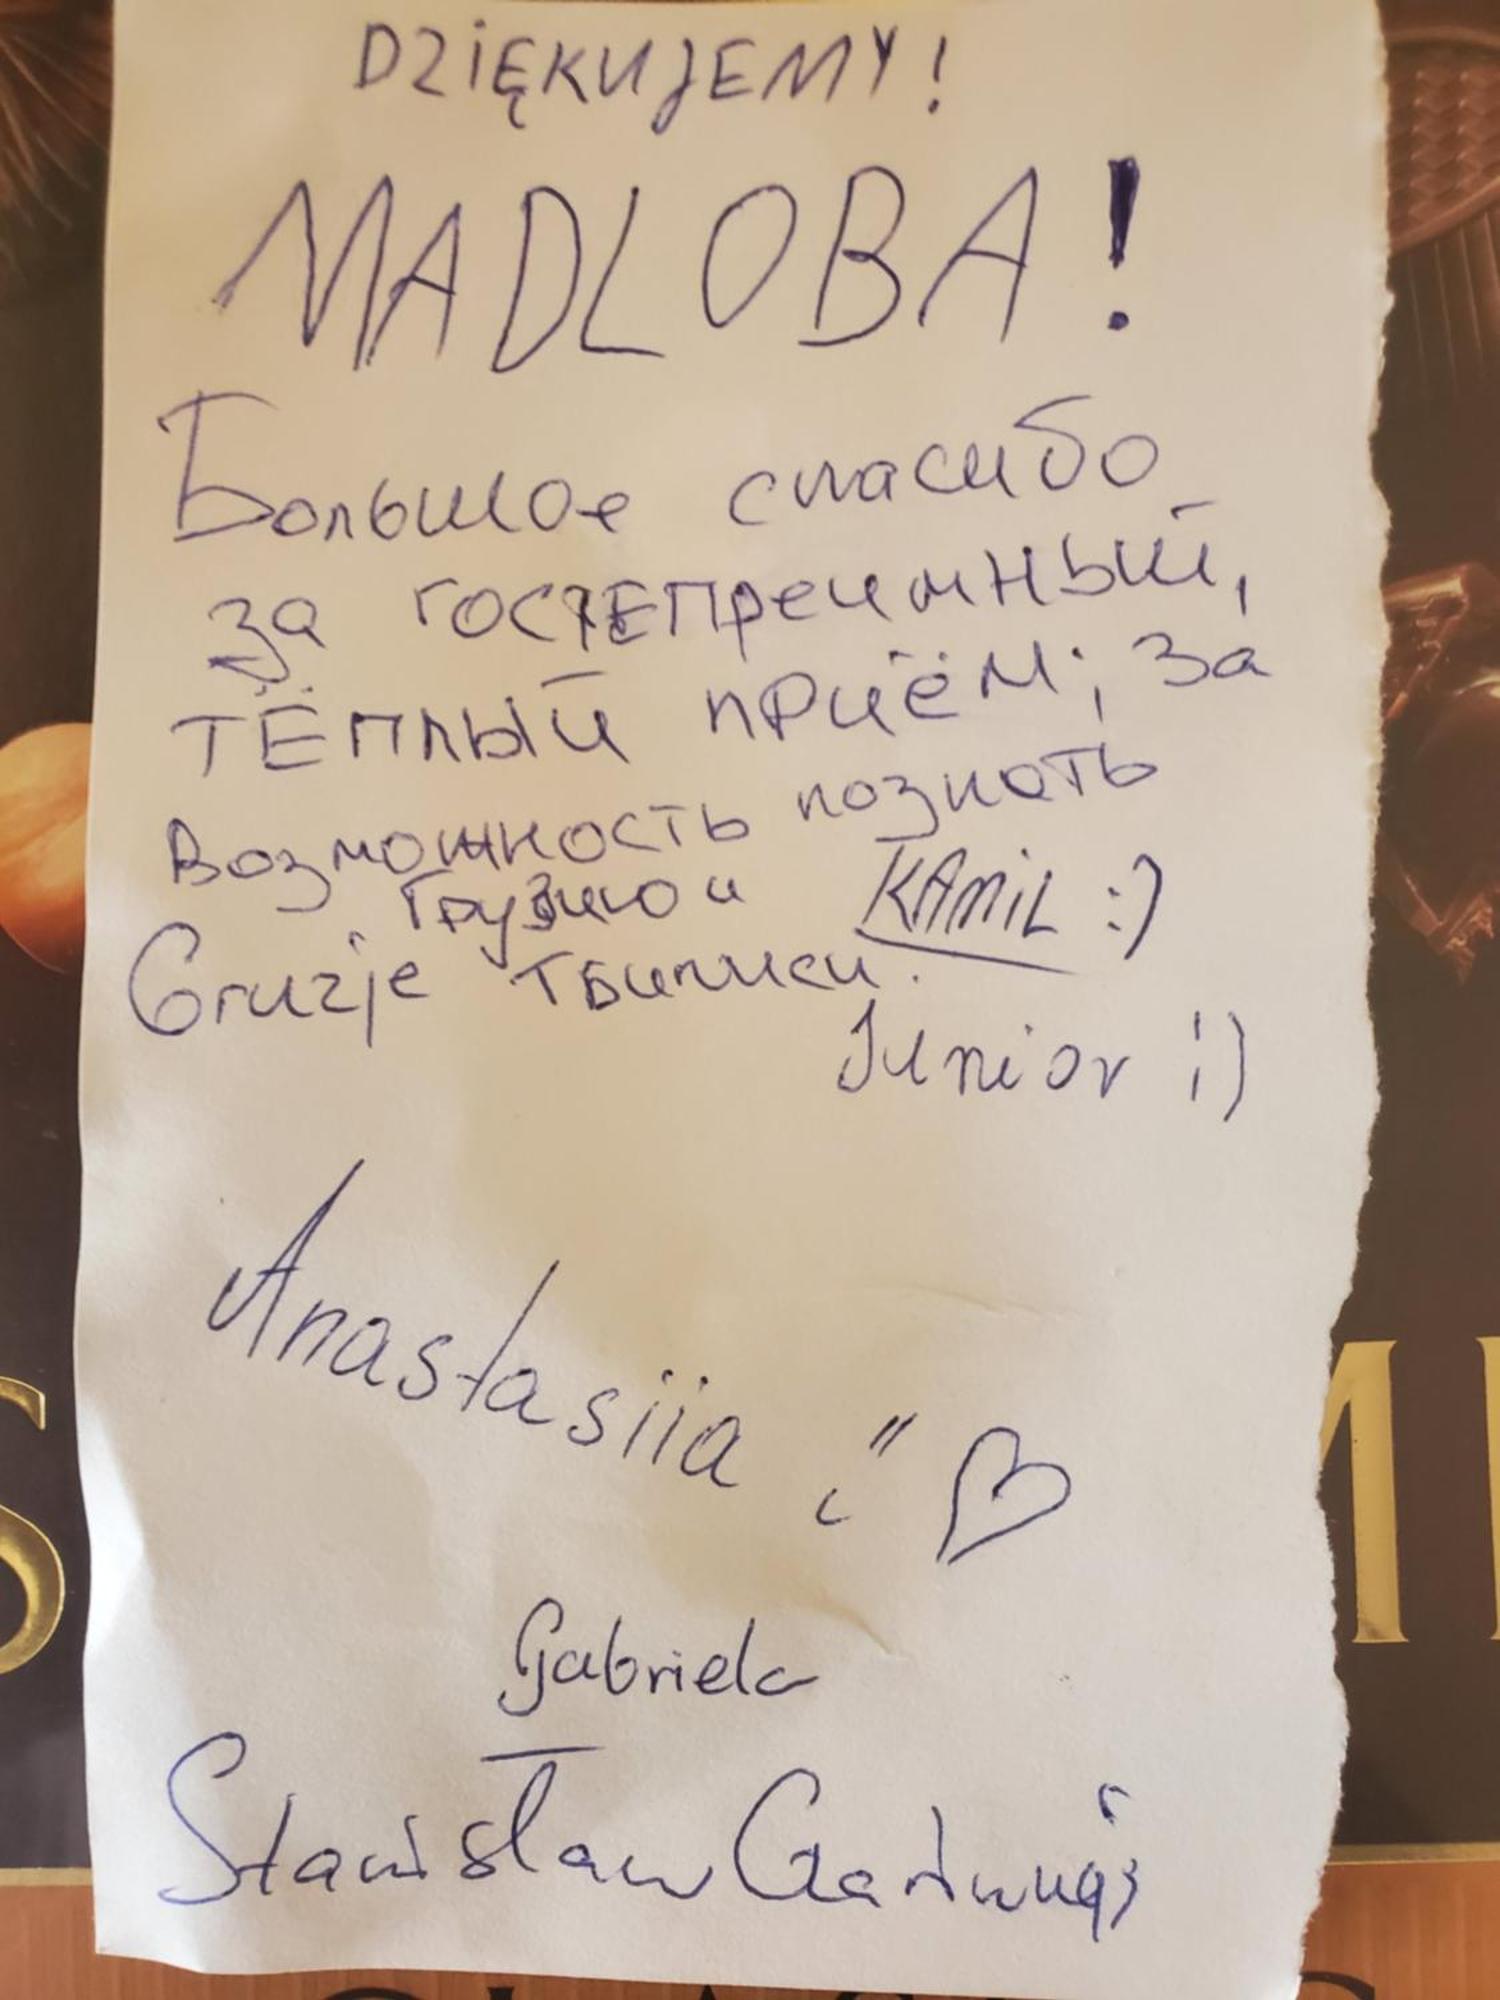 DZIĘKUJEMY!
MADLOBA!
Большое спасибо
за гостЕПреимный,
ТЁПЛЫЙ приём; за
возможность познать
Грузию и
KAMIL :)
Gruzje Тбилиси.
Junior ;)
Anastasiia
Gabriela
Stanisław